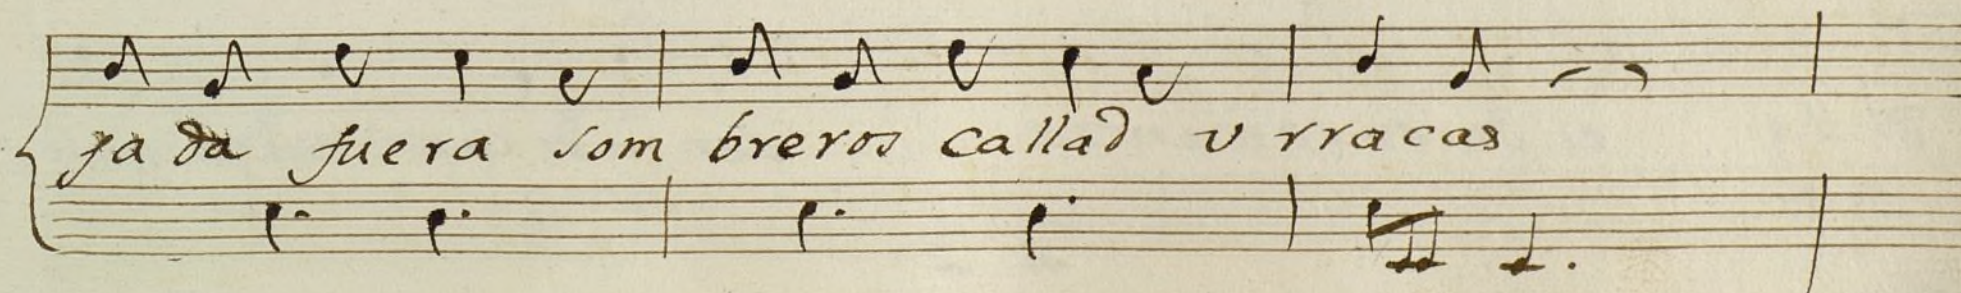 ya da fuera som breros callad u rracas